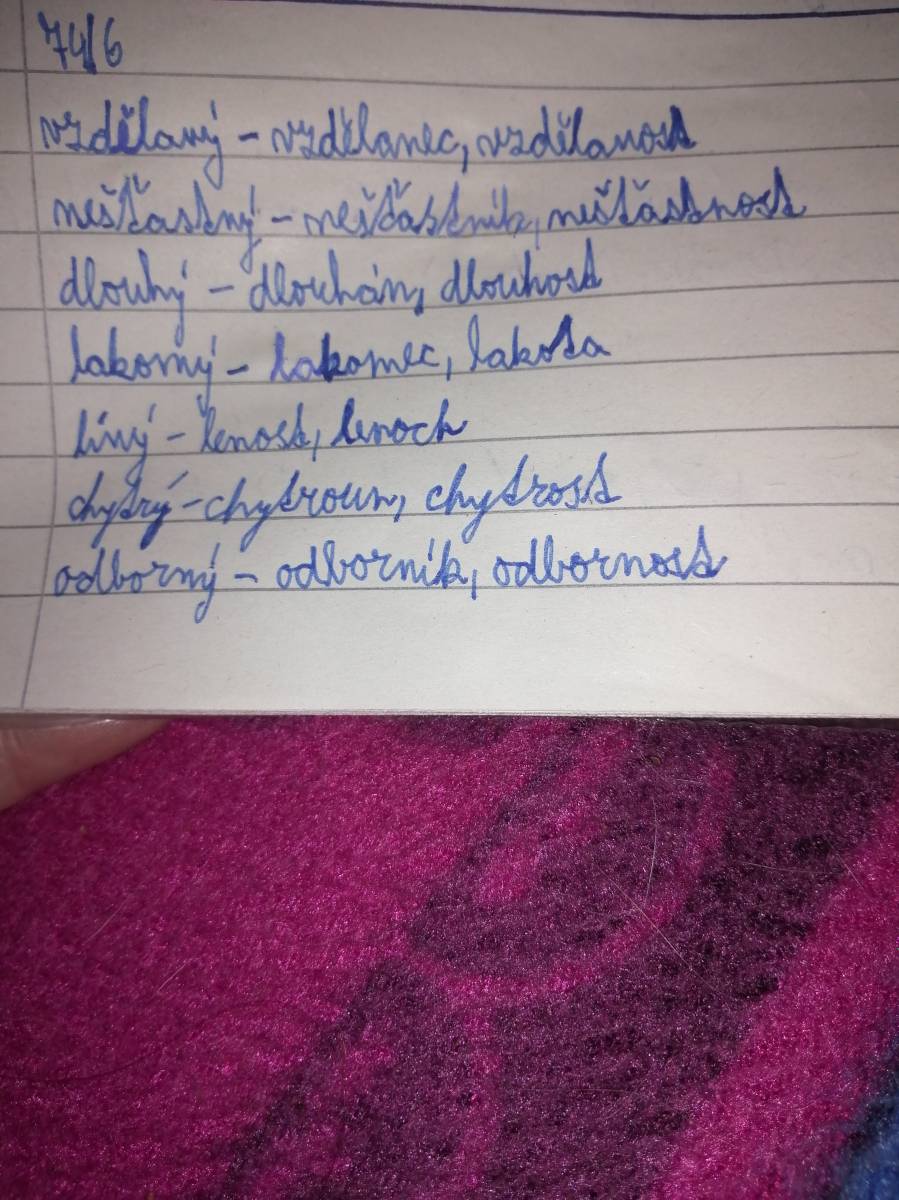 74/6
vzdělaný - vzdělanec, vzdělanost
nešťastný - nešťastník, nešťastnost
dlouhý - dlouhán, dlouhost
lakomý - lakomec, lakota
líný - lenost, lenoch
chytrý - chytroun, chytrost
odborný - odborník, odbornost